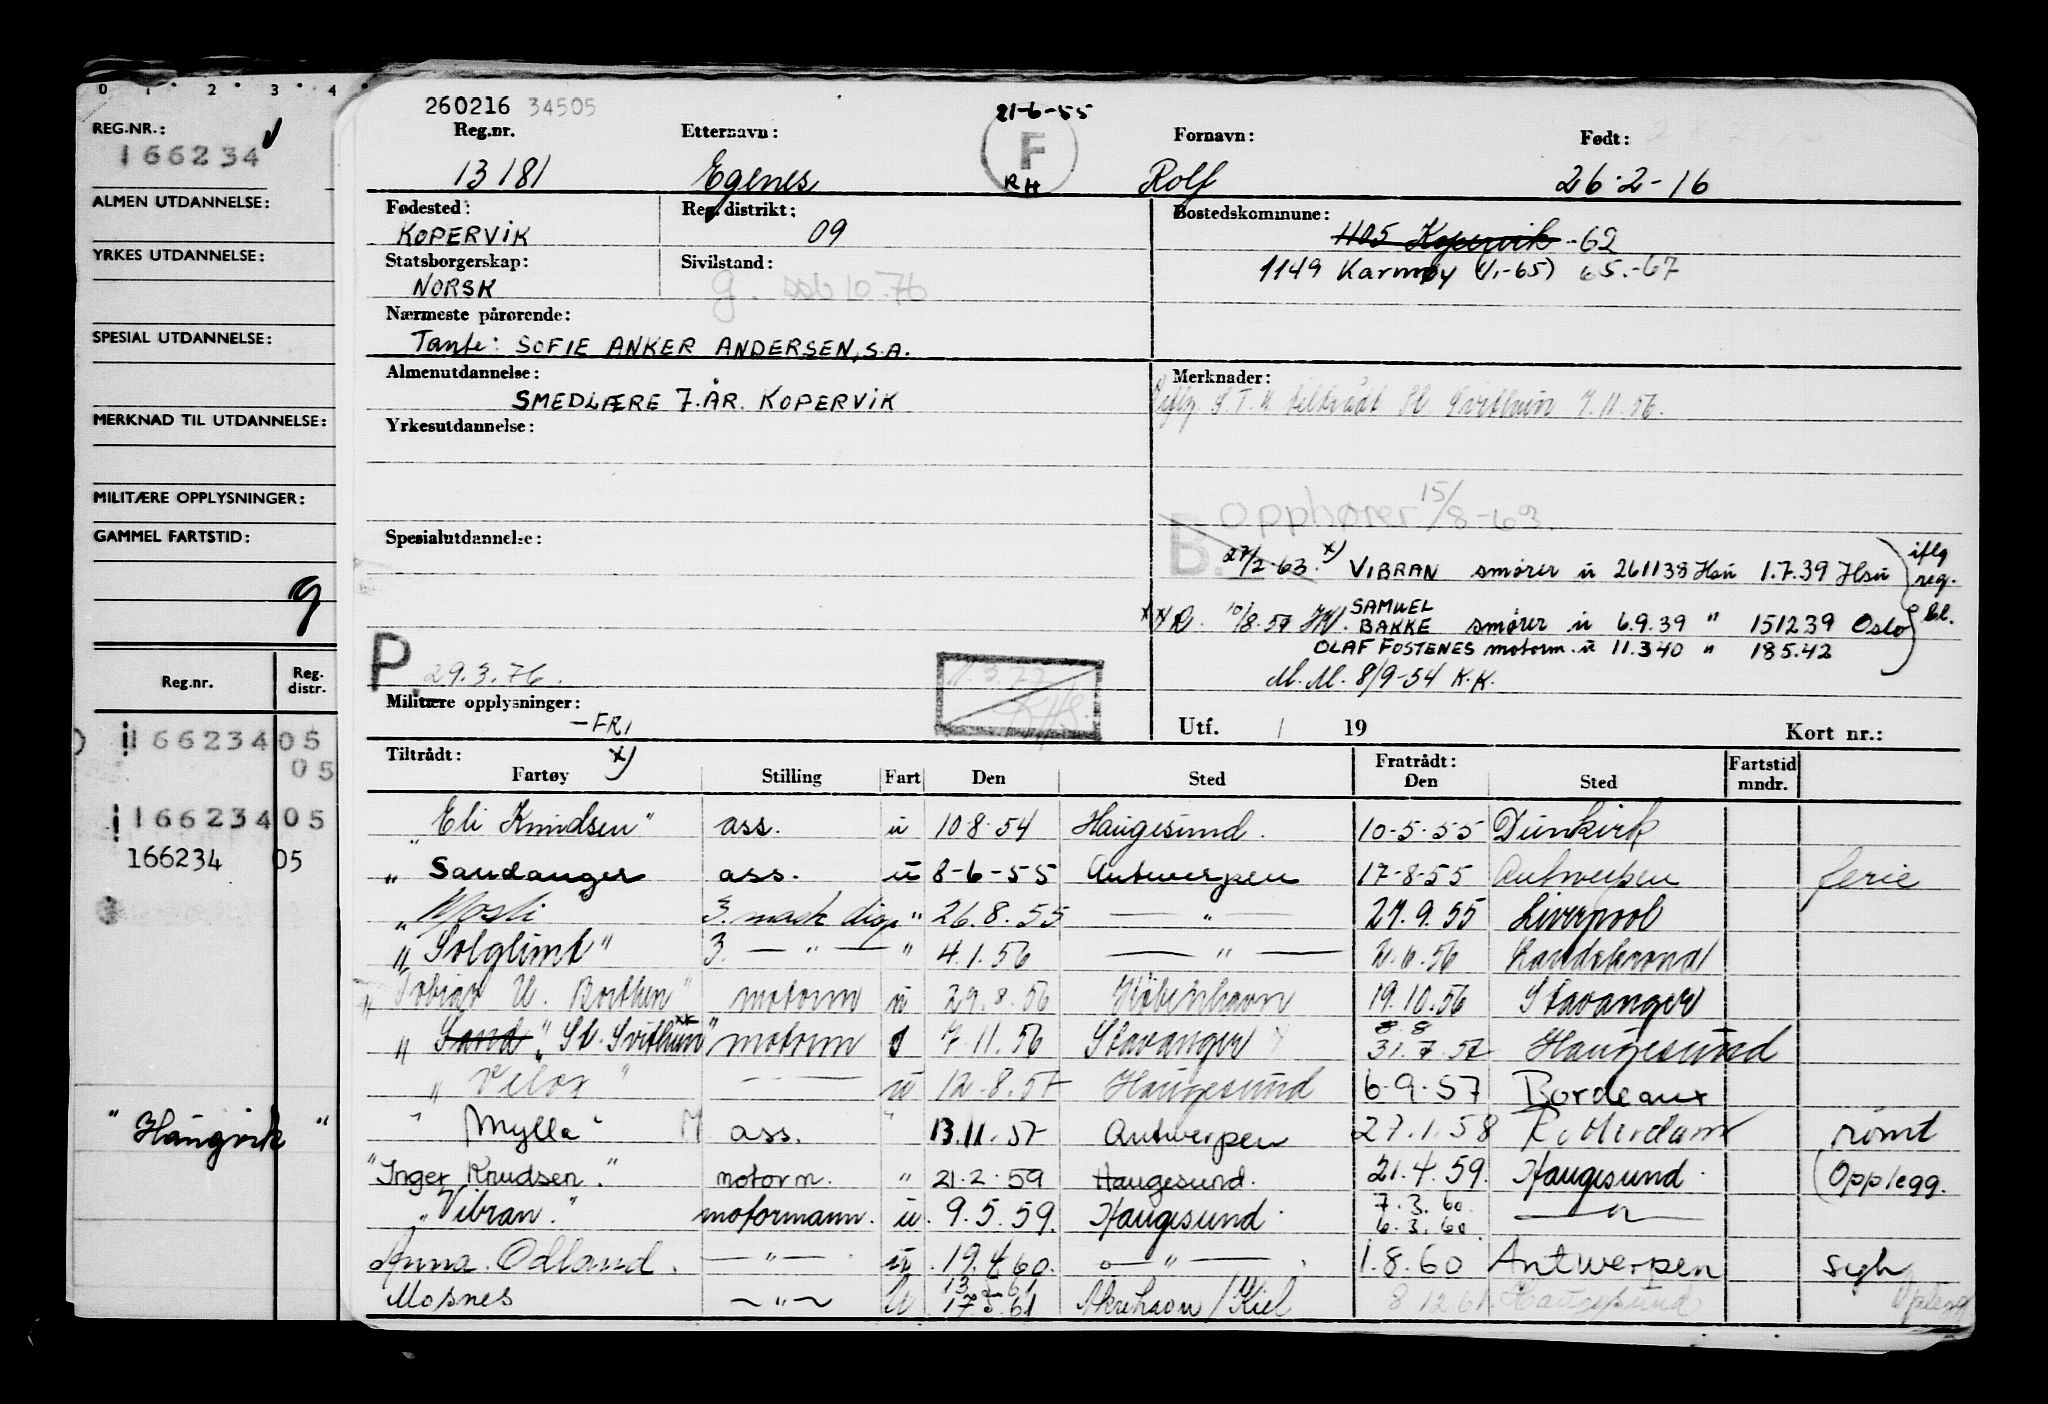 0 1 2 3 4
REG.NR.:
166234
ALMEN UTDANNELSE:
YRKES UTDANNELSE:
SPESIAL UTDANNELSE:
MERKNAD TIL UTDANNELSE:
MILITÆRE OPPLYSNINGER:
GAMMEL FARTSTID:
g
Reg.nr. Reg. distr.
166234 05
05
166234 05
166234 05
"Haugvik"
260216 34505
21-6-55
Reg.nr. Etternavn: F Fornavn: Født:
13181 Egenes RH Rolf 26·2-16
Fødested: Reg. distrikt: Bostedskommune:
KOPERVIK 09 1105 Kopervik -62
Statsborgerskap: Sivilstand: 1149 Karmøy (1/1-65) 65.-67
NORSK g. ssb 10.76
Nærmeste pårørende:
Tante: SOFIE ANKER ANDERSEN, S.A.
Almenutdannelse: Merknader:
SMEDLÆRE 7.ÅR. KOPERVIK
tiltrådt St Svithun 7.11.56.
Yrkesutdannelse:
opphører 15/8-63.
Spesialutdannelse:
B. 27/2-63. x) VIBRAN smører u 261138 Hsu 1.7.39 Hsu iflg reg. bl.
xx R. 10/8.59 SAMUEL BAKKE smører u 6.9.39 " 151239 Oslo
OLAF FOSTENES motorm. u 11.340 " 185.42
M.M. 8/9-54 K.K.
P. 29.3.76. 11.3.77
Militære opplysninger: Utf. / 19 Kort nr.:
-FRI
Tiltrådt: x) Fratrådt: Fartstid
Fartøy Stilling Fart Den Sted Den Sted mndr.
"Eli Knudsen" ass. u 10·8·54 Haugesund. 10-5-55 Dunkirk
" Sandanger ass. u 8-6-55 Antwerpen 17-8-55 Antwerpen ferie
" Mosli 3. mask disp " 26.8.55 — " — 27.9.55 Liverpool
" Solglimt" 3. — " — " 4.1.56 — " — 2.6.56 Landskrona
" Tobias U. Borthen" motorm u 29.8.56 København 19.10.56 Stavanger
" Sand "St. Svithun" xx motorm 7.11.56 Stavanger 8 8 31.7.57 Haugesund
" Velox" — u 12.8.57 Haugesund 6-9-57 Bordeaux
" Mylla" M ass. " 13.11.57 Antwerpen 27.1.58 Rotterdam rømt
"Inger Knudsen." motorm. " 21.2.59 Haugesund. 21.4.59. Haugesund. (Opplegg.
"Vibran." motormann. u. 9.5.59. Haugesund. 7.3.60. 6.3.60. — " —
Anna Odland. — " — u 19.4.60. — " — 1.8.60 Antwerpen sygh
Mosnes — " — u 13.5.61 17.5.61 Åkrehavn / Kiel 8.12.61. Haugesund Oplegg